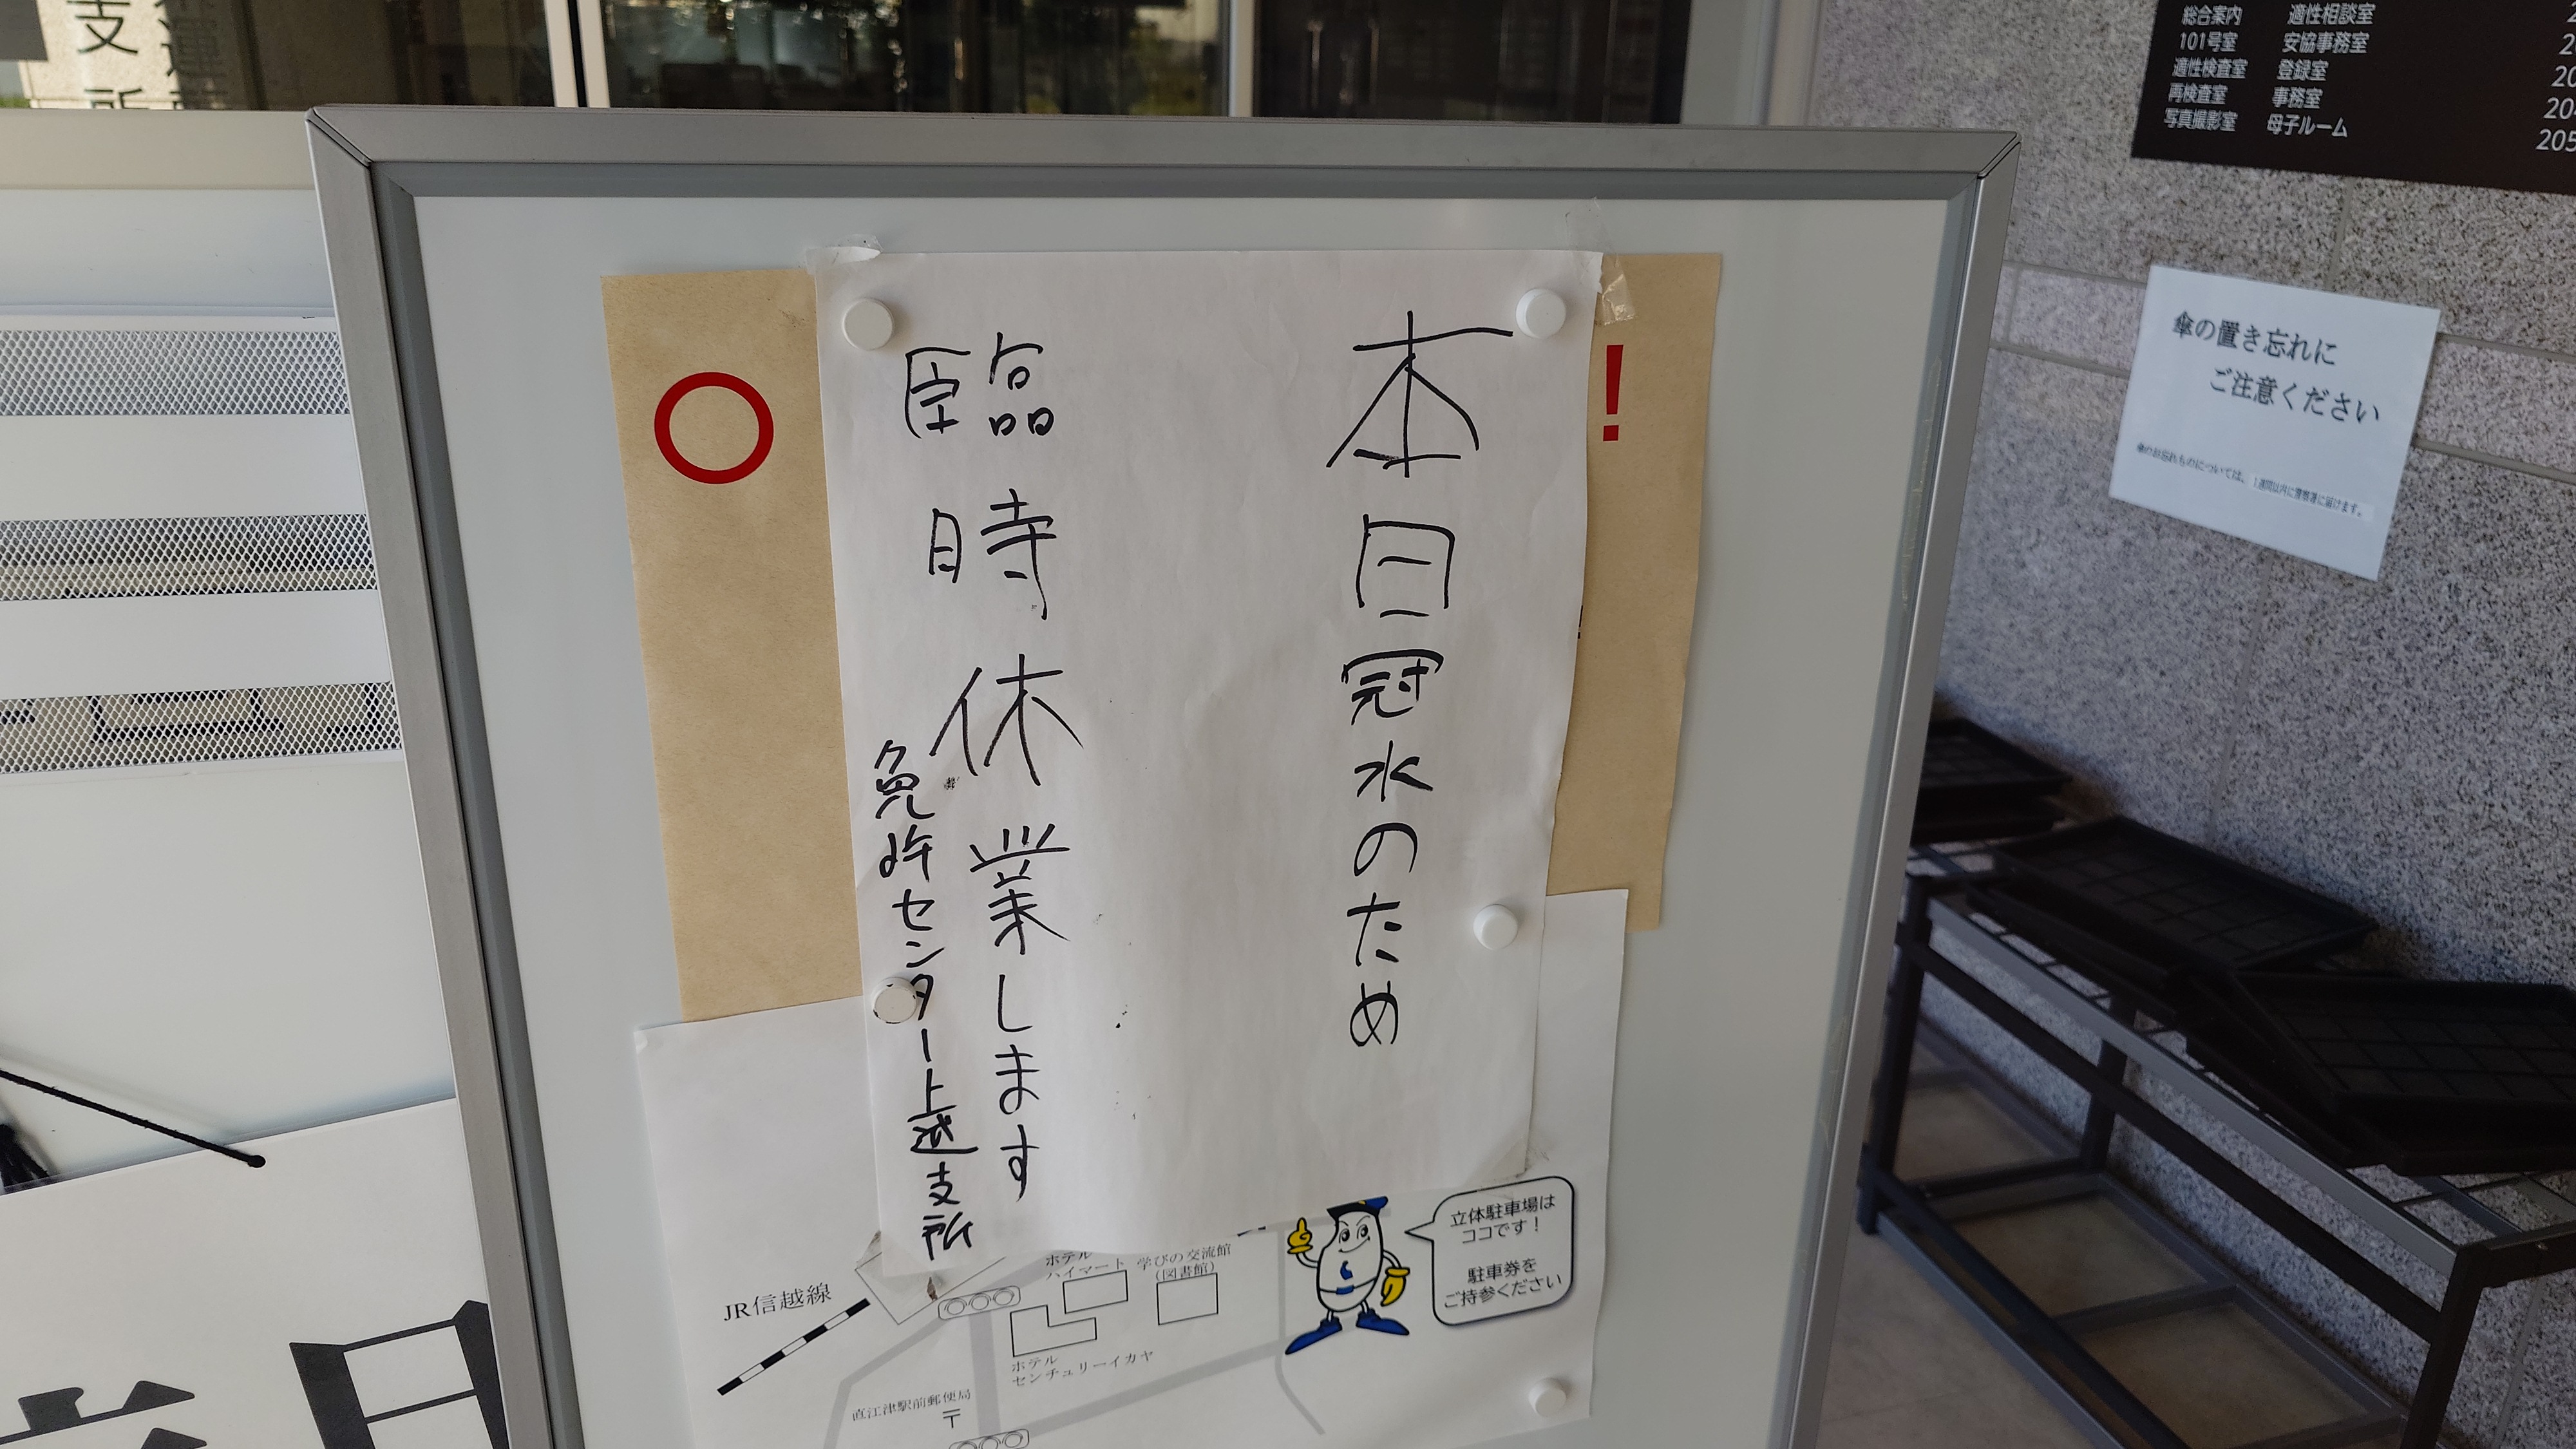 本日冠水のため
臨時休業します
免許センター上越支所
!
立体駐車場は
ココです!
駐車券を
ご持参ください
JR信越線
ホテル
ハイマート
学びの交流館
(図書館)
ホテル
センチュリーイカヤ
直江津駅前郵便局
〒
支所
総合案内
101号室
適性検査室
再検査室
写真撮影室
適性相談室
安協事務室
登録室
事務室
母子ルーム
205
傘の置き忘れに
ご注意ください
傘のお忘れものについては、1週間以内に警察署に届けます。